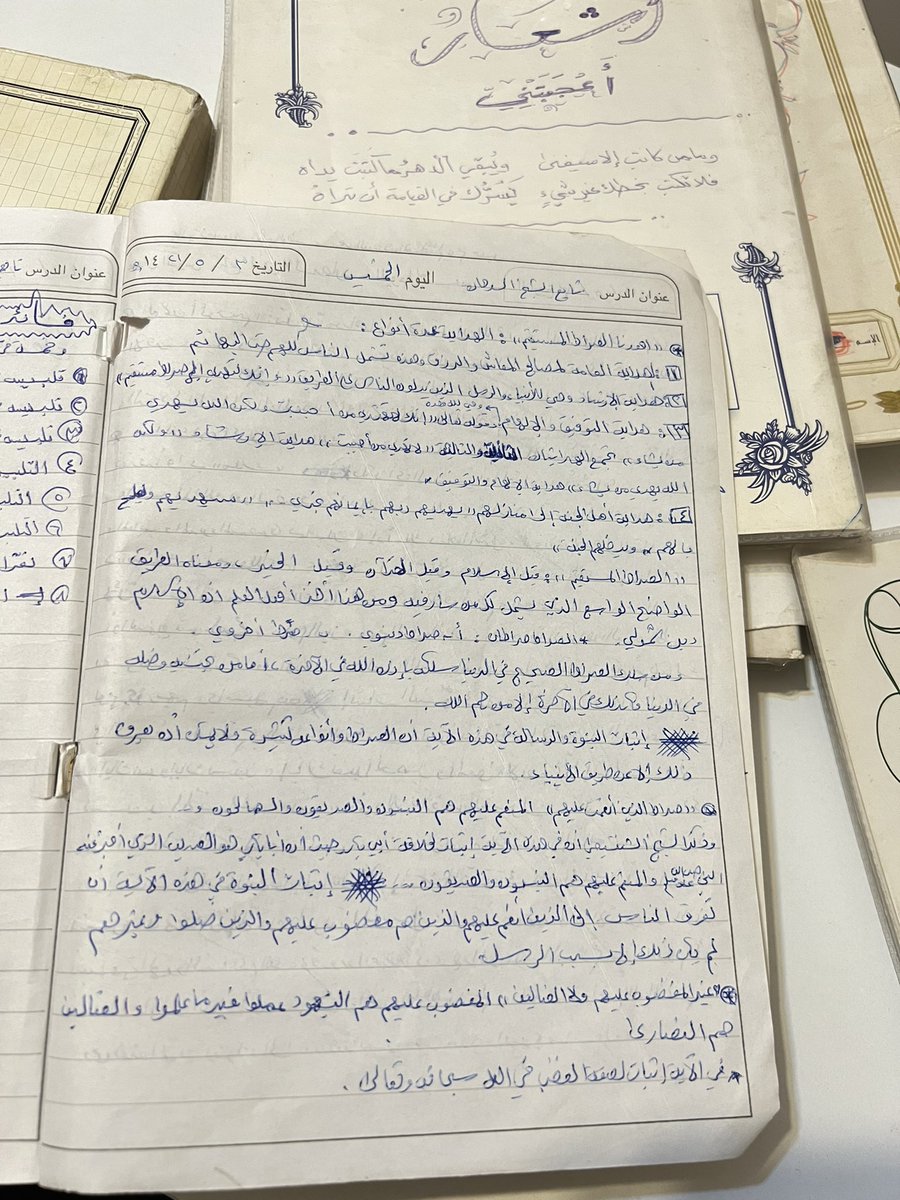 أشعار
أعجبتني
وما من كاتب إلا سيفنى ويُبقي الدهر ما كتبت يداه
فلا تكتب بخطك غير شيءٍ يَسُرُّك في القيامة أن تراهُ
الاسم
عنوان الدرس تابع الشيخ اليوم الخميس التاريخ ٣ / ٥ / ١٤٢٦هـ
* «اهدنا الصراط المستقيم» : الهداية عدة أنواع :
١ : هداية العامة لمصالح المعاش والرزق وهذه تشمل الناس كلهم حتى البهائم
٢ : هداية الإرشاد وهي للأنبياء والرسل الذين يدلون الناس على الطريق «وإنك لتهدي إلى صراط مستقيم»
٣ : هداية التوفيق والإلهام وهي لله وحده قوله تعالى «إنك لا تهدي من أحببت ولكن الله يهدي
من يشاء» تجمع الهدايتان الثانية والثالثة «لا تهدي من أحببت» هداية الإرشاد «ولكن
الله يهدي من يشاء» هداية الإلهام والتوفيق.
٤ : هداية أهل الجنة إلى منازلهم «يهديهم ربهم بإيمانهم تجري» «سيهديهم ويصلح
بالهم» ويدخلهم الجنة»
«الصراط المستقيم» : قيل الإسلام وقيل القرآن وقيل ومعناه الطريق
الواضح الواسع الذي يشمل كل من سار فيه ومن هذا أخذ أهل العلم أن الإسلام
دين شمولي. * الصراط صراطان : أ- صراط دنيوي. ب- صراط أخروي.
ومن سلك الصراط الصحيح في الدنيا سلكه بإذن الله في الآخرة، أما من
في الدنيا فكذلك في الآخرة إلا من رحم الله.
إثبات النبوة والرسالة في هذه الآية أن الصراط وأنواعه كثيرة ولا يمكن أن نعرف
ذلك إلا عن طريق الأنبياء
* «صراط الذين أنعمت عليهم» المنعم عليهم هم النبيون والصديقون والصالحون و
وذكر الشيخ الشنقيطي أن في هذه الآية إثبات لخلافة أبي بكر حيث أن أبا بكر هو الصديق الذي أخبر عنه
النبي صلى الله عليه وسلم والمنعم عليهم هم النبيون والصديقون .. إثبات النبوة في هذه الآية أن
تفرق الناس إلى الذين أنعم عليهم والذين هم مغضوب عليهم والذين ضلوا وغيرهم
لم يكن ذلك إلا بسبب الرسل.
* «غير المغضوب عليهم ولا الضالين» المغضوب عليهم هم اليهود عملوا غير ما علموا والضالين
هم النصارى
* في الآية إثبات لصفة الغضب في الله سبحانه وتعالى.
عنوان الدرس
١
٢
٣
٤
٥
٦
٧
٨